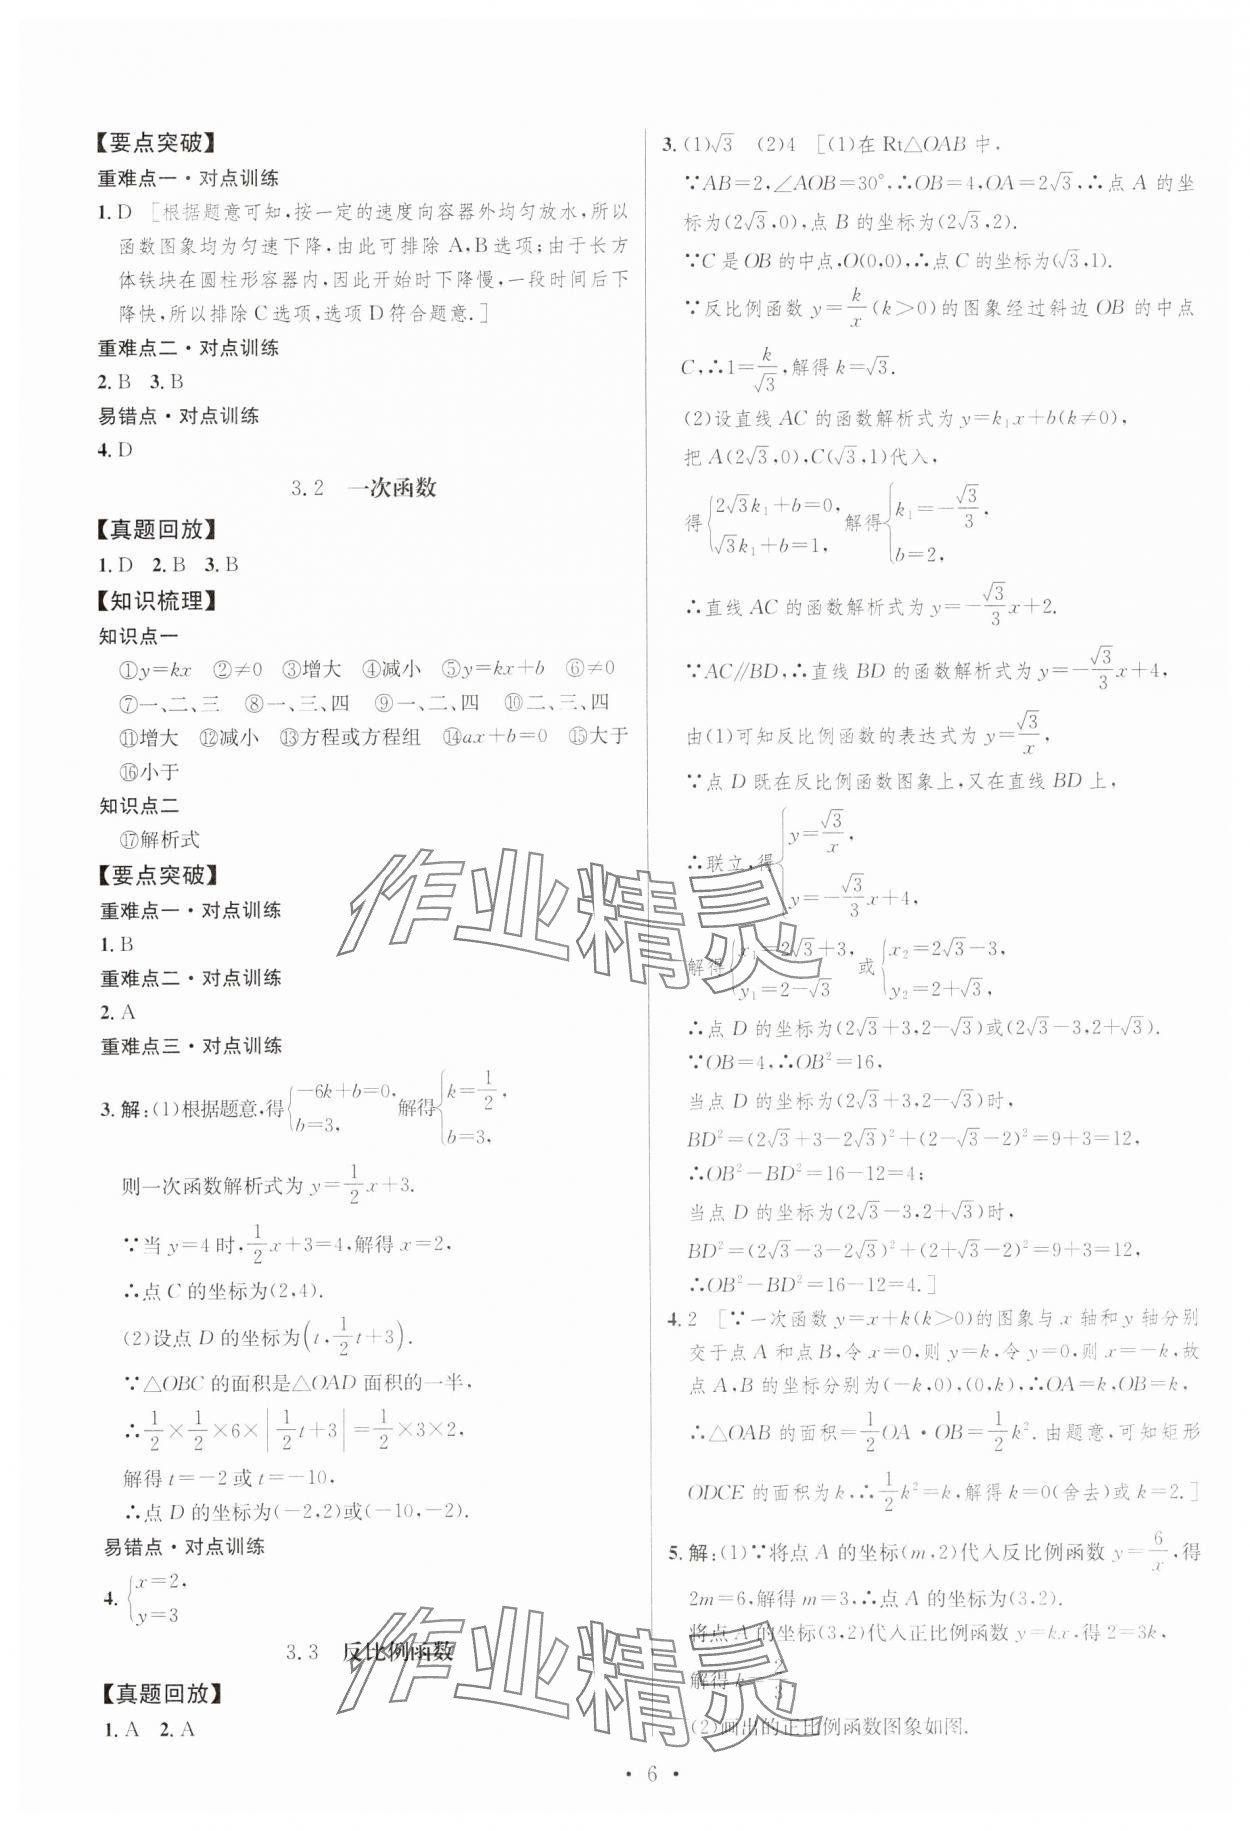 【要点突破】
重难点一·对点训练
1. D [根据题意可知,按一定的速度向容器外均匀放水,所以
函数图象均为匀速下降,由此可排除A,B选项;由于长方
体铁块在圆柱形容器内,因此开始时下降慢,一段时间后下
降快,所以排除C选项,选项D符合题意.]
重难点二·对点训练
2. B 3. B
易错点·对点训练
4. D
3.2 一次函数
【真题回放】
1. D 2. B 3. B
【知识梳理】
知识点一
①y=kx ②≠0 ③增大 ④减小 ⑤y=kx+b ⑥≠0
⑦一、二、三 ⑧一、三、四 ⑨一、二、四 ⑩二、三、四
⑪增大 ⑫减小 ⑬方程或方程组 ⑭ax+b=0 ⑮大于
⑯小于
知识点二
⑰解析式
【要点突破】
重难点一·对点训练
1. B
重难点二·对点训练
2. A
重难点三·对点训练
3. 解:(1)根据题意,得{-6k+b=0, b=3, 解得{k=1/2, b=3,
则一次函数解析式为 y=1/2x+3.
∵当 y=4 时,1/2x+3=4,解得 x=2,
∴点 C 的坐标为(2,4).
(2)设点 D 的坐标为(t,1/2t+3).
∵△OBC 的面积是△OAD 面积的一半,
∴1/2×1/2×6×|1/2t+3|=1/2×3×2,
解得 t=-2 或 t=-10,
∴点 D 的坐标为(-2,2)或(-10,-2).
易错点·对点训练
4. {x=2, y=3
3.3 反比例函数
【真题回放】
1. A 2. A
3. (1)√3 (2)4 [(1)在 Rt△OAB 中,
∵AB=2,∠AOB=30°,∴OB=4,OA=2√3,∴点 A 的坐
标为(2√3,0),点 B 的坐标为(2√3,2).
∵C 是 OB 的中点,O(0,0),∴点 C 的坐标为(√3,1).
∵反比例函数 y=k/x(k>0)的图象经过斜边 OB 的中点
C,∴1=k/√3,解得 k=√3.
(2)设直线 AC 的函数解析式为 y=k₁x+b(k≠0),
把 A(2√3,0),C(√3,1)代入,
得{2√3k₁+b=0, √3k₁+b=1, 解得{k₁=-√3/3, b=2,
∴直线 AC 的函数解析式为 y=-√3/3x+2.
∵AC∥BD,∴直线 BD 的函数解析式为 y=-√3/3x+4,
由(1)可知反比例函数的表达式为 y=√3/x,
∵点 D 既在反比例函数图象上,又在直线 BD 上,
∴联立,得{y=√3/x, y=-√3/3x+4,
解得{x₁=2√3+3, y₁=2-√3 或{x₂=2√3-3, y₂=2+√3,
∴点 D 的坐标为(2√3+3,2-√3)或(2√3-3,2+√3).
∵OB=4,∴OB²=16,
当点 D 的坐标为(2√3+3,2-√3)时,
BD²=(2√3+3-2√3)²+(2-√3-2)²=9+3=12,
∴OB²-BD²=16-12=4;
当点 D 的坐标为(2√3-3,2+√3)时,
BD²=(2√3-3-2√3)²+(2+√3-2)²=9+3=12,
∴OB²-BD²=16-12=4.]
4. 2 [∵一次函数 y=x+k(k>0)的图象与 x 轴和 y 轴分别
交于点 A 和点 B,令 x=0,则 y=k,令 y=0,则 x=-k,故
点 A,B 的坐标分别为(-k,0),(0,k),∴OA=k,OB=k,
∴△OAB 的面积=1/2OA·OB=1/2k².由题意,可知矩形
ODCE 的面积为 k,∴1/2k²=k,解得 k=0(舍去)或 k=2.]
5. 解:(1)∵将点 A 的坐标(m,2)代入反比例函数 y=6/x,得
2m=6,解得 m=3,∴点 A 的坐标为(3,2).
将点 A 的坐标(3,2)代入正比例函数 y=kx,得 2=3k,
解得 k=2/3.
(2)画出的正比例函数图象如图.
·6·
作业精灵
作业精灵